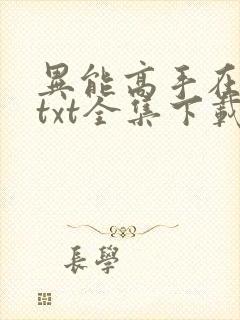 異能高手在
txt全集下載
長學